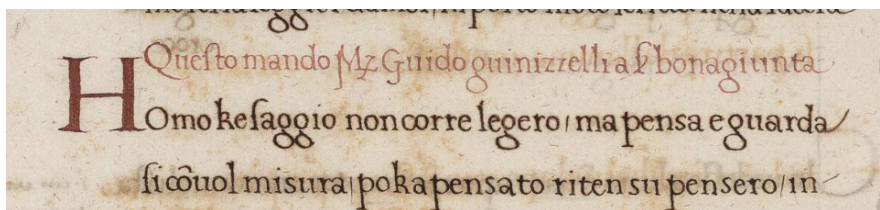 Questo mando Mz Guido guinizzelli a ẜ bonagiunta
Homo ke saggio non corre legero / ma pensa e guarda
si cõ uol misura / poka pensato riten su pensero / in